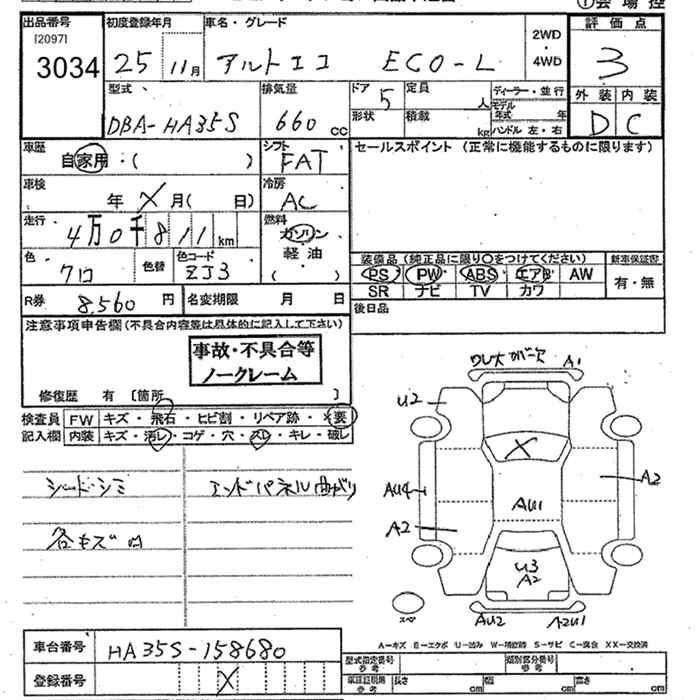 出品番号
[2097]
3034
初度登録年月
25 11月
車名・グレード
アルトエコ ECO-L
2WD
・
4WD
評価点
3
外装 内装
D C
型式
DBA-HA35S
排気量
660 cc
ドア 5
形状
定員 人
積載 kg
ディーラー・並行
モデル年式 年
ハンドル 左・右
車歴
自家用・( )
シフト
FAT
車検
年 X 月( 日)
冷房
AC
走行
4万0千811km
燃料
ガソリン
軽油
( )
色
クロ
色替
色コード
ZJ3
R券 8,560 円
名変期限 月 日
セールスポイント (正常に機能するものに限ります)
装備品 (純正品に限り○をつけてください) 新車保証書
PS PW ABS エアB AW
SR ナビ TV カワ
有・無
後日品
注意事項申告欄(不具合内容等は具体的に記入して下さい)
事故・不具合等
ノークレーム
修復歴 有 [箇所 ]
検査員 FW キズ・飛石・ヒビ割・リペア跡・X要
記入欄 内装 キズ・汚レ・コゲ・穴・スレ・キレ・破レ
シート・シミ エンドパネル曲がり
各キズ凹
ワレ大 カバー欠 A1
U2
X
AU4
A2
AU1
A2
U3
A2
スペア
AU2 A2U1
A-キズ E-エクボ U-凹み W-補修跡 S-サビ C-腐食 XX-交換済
車台番号 HA35S-158680
登録番号 X
型式指定番号 参考
類別区分番号 参考
車庫証明用 参考 長さ cm 幅 cm 高さ cm